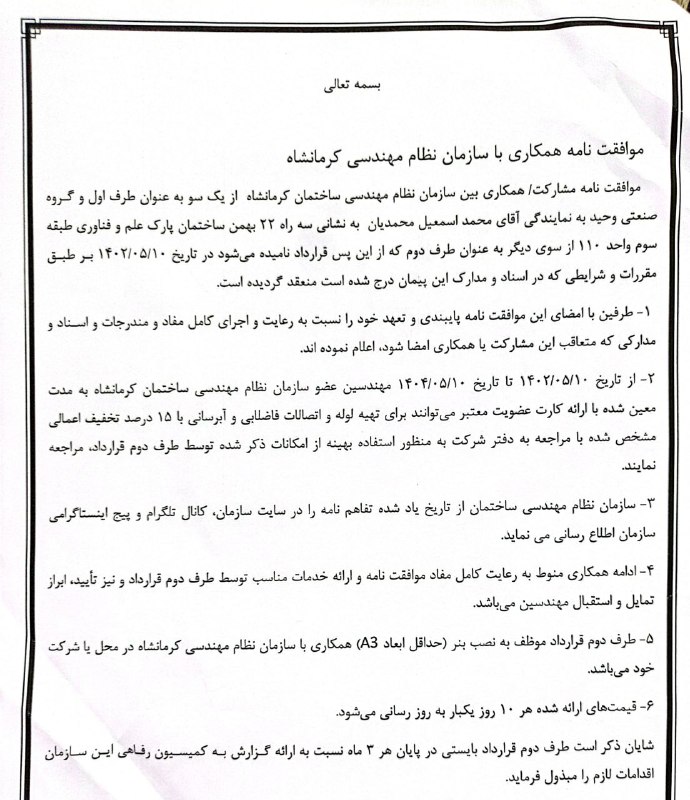 بسمه تعالی
موافقت نامه همکاری با سازمان نظام مهندسی کرمانشاه
موافقت نامه مشارکت/ همکاری بین سازمان نظام مهندسی ساختمان کرمانشاه از یک سو به عنوان طرف اول و گروه
صنعتی وحید به نمایندگی آقای محمد اسمعیل محمدیان به نشانی سه راه ۲۲ بهمن ساختمان پارک علم و فناوری طبقه
سوم واحد ۱۱۰ از سوی دیگر به عنوان طرف دوم که از این پس قرارداد نامیده می‌شود در تاریخ ۱۴۰۲/۰۵/۱۰ بر طبق
مقررات و شرایطی که در اسناد و مدارک این پیمان درج شده است منعقد گردیده است.
۱- طرفین با امضای این موافقت نامه پایبندی و تعهد خود را نسبت به رعایت و اجرای کامل مفاد و مندرجات و اسناد و
مدارکی که متعاقب این مشارکت یا همکاری امضا شود، اعلام نموده اند.
۲- از تاریخ ۱۴۰۲/۰۵/۱۰ تا تاریخ ۱۴۰۴/۰۵/۱۰ مهندسین عضو سازمان نظام مهندسی ساختمان کرمانشاه به مدت
معین شده با ارائه کارت عضویت معتبر می‌توانند برای تهیه لوله و اتصالات فاضلابی و آبرسانی با ۱۵ درصد تخفیف اعمالی
مشخص شده با مراجعه به دفتر شرکت به منظور استفاده بهینه از امکانات ذکر شده توسط طرف دوم قرارداد، مراجعه
نمایند.
۳- سازمان نظام مهندسی ساختمان از تاریخ یاد شده تفاهم نامه را در سایت سازمان، کانال تلگرام و پیج اینستاگرامی
سازمان اطلاع رسانی می نماید.
۴- ادامه همکاری منوط به رعایت کامل مفاد موافقت نامه و ارائه خدمات مناسب توسط طرف دوم قرارداد و نیز تأیید، ابراز
تمایل و استقبال مهندسین می‌باشد.
۵- طرف دوم قرارداد موظف به نصب بنر (حداقل ابعاد A3) همکاری با سازمان نظام مهندسی کرمانشاه در محل یا شرکت
خود می‌باشد.
۶- قیمت‌های ارائه شده هر ۱۰ روز یکبار به روز رسانی می‌شود.
شایان ذکر است طرف دوم قرارداد بایستی در پایان هر ۳ ماه نسبت به ارائه گزارش به کمیسیون رفاهی این سازمان
اقدامات لازم را مبذول فرماید.